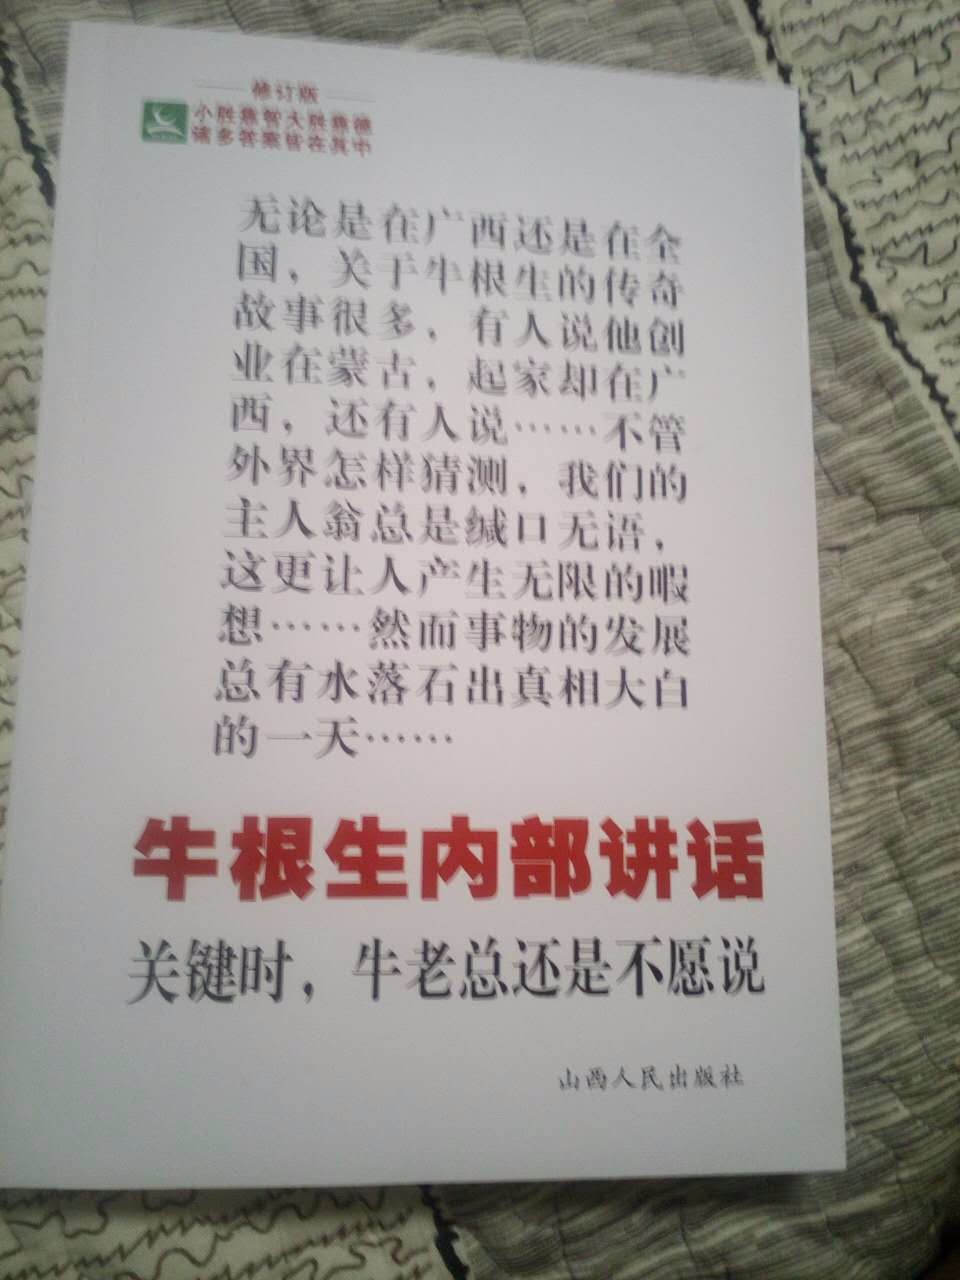 修订版
小胜靠智大胜靠德
诸多答案皆在其中
无论是在广西还是在全
国，关于牛根生的传奇
故事很多，有人说他创
业在蒙古，起家却在广
西，还有人说……不管
外界怎样猜测，我们的
主人翁总是缄口无语，
这更让人产生无限的暇
想……然而事物的发展
总有水落石出真相大白
的一天……
牛根生内部讲话
关键时，牛老总还是不愿说
山西人民出版社